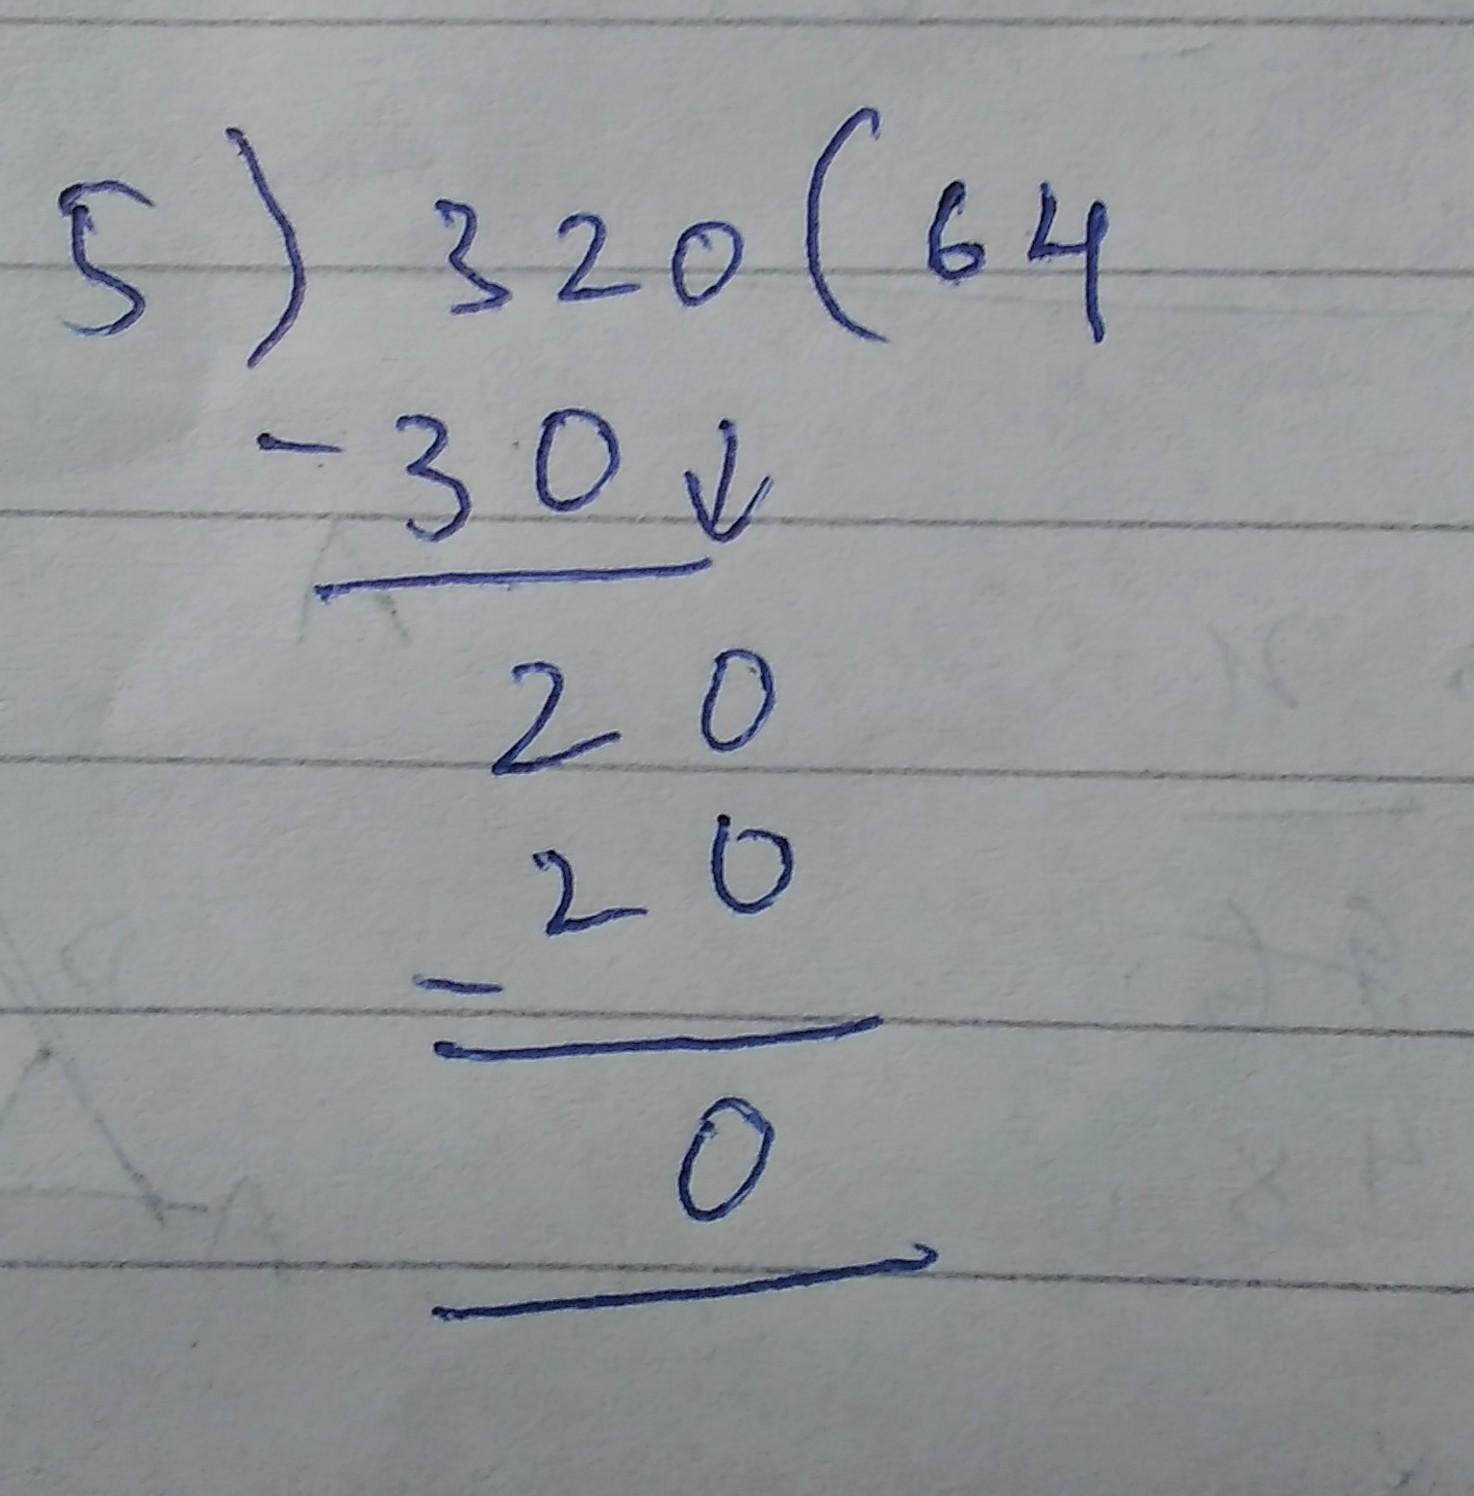 5 ) 320 ( 64
- 30 ↓
20
20
-
0